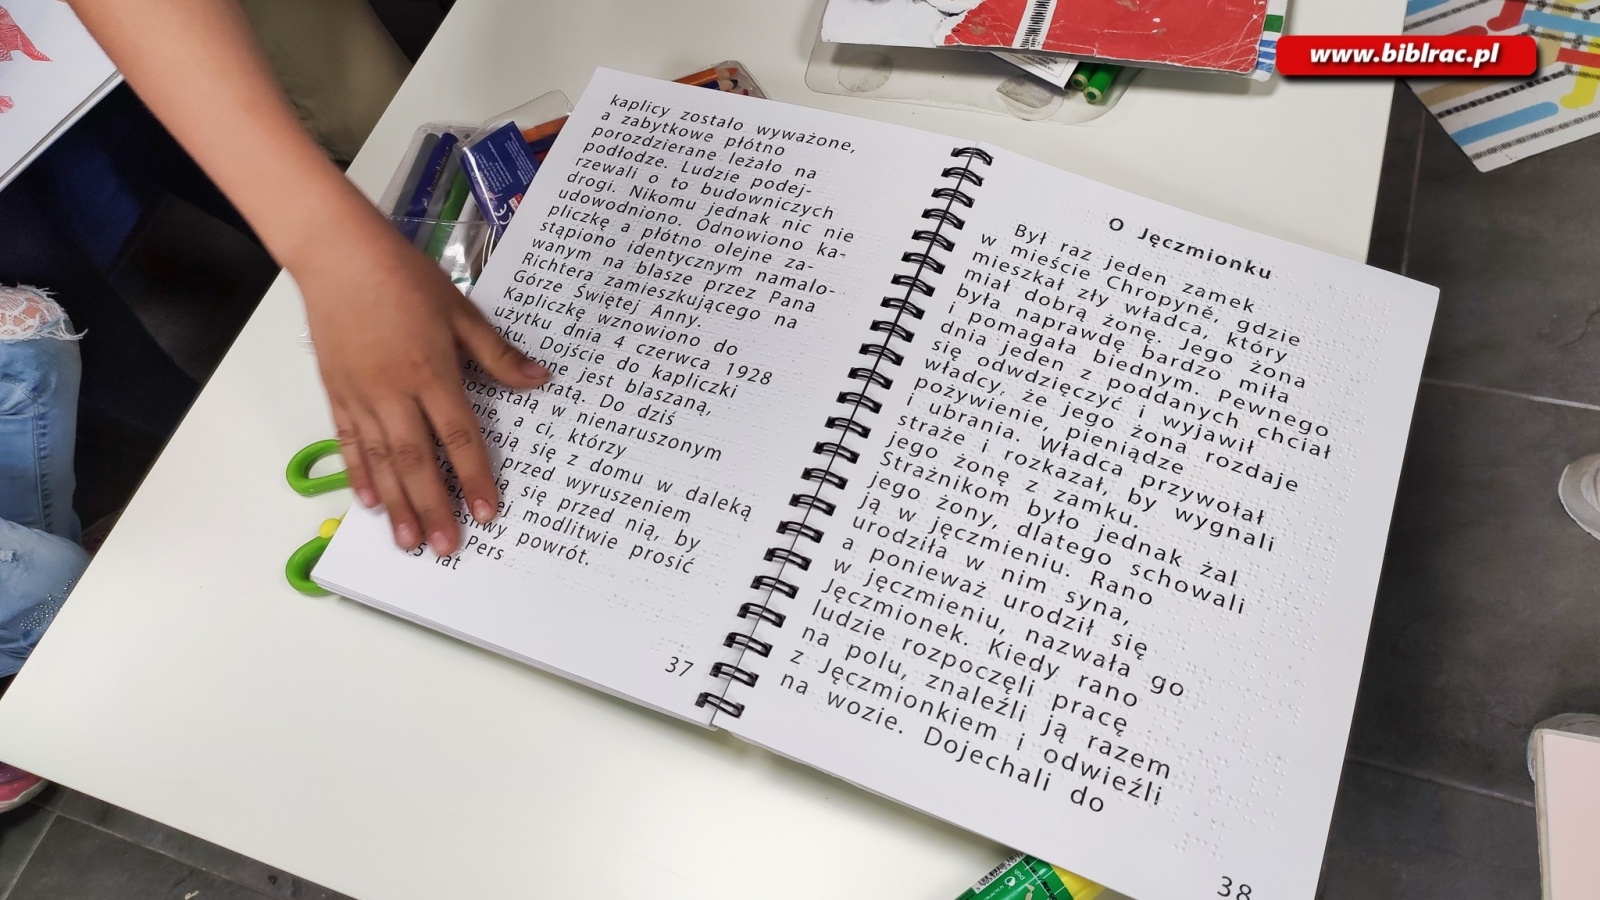 www.biblrac.pl
kaplicy zostało wyważone,
a zabytkowe płótno
porozdzierane leżało na
podłodze. Ludzie podej-
rzewali o to budowniczych
drogi. Nikomu jednak nic nie
udowodniono. Odnowiono ka-
pliczkę a płótno olejne za-
stąpiono identycznym namalo-
wanym na blasze przez Pana
Richtera zamieszkującego na
Górze Świętej Anny.
Kapliczkę wznowiono do
użytku dnia 4 czerwca 1928
roku. Dojście do kapliczki
jest blaszaną,
kratą. Do dziś
pozostałą w nienaruszonym
a ci, którzy
się z domu w daleką
przed wyruszeniem
się przed nią, by
modlitwie prosić
powrót.
Pers
lat
37
O Jęczmionku
Był raz jeden zamek
w mieście Chropyně, gdzie
mieszkał zły władca, który
miał dobrą żonę. Jego żona
była naprawdę bardzo miła
i pomagała biednym. Pewnego
dnia jeden z poddanych chciał
się odwdzięczyć i wyjawił
władcy, że jego żona rozdaje
pożywienie, pieniądze
i ubrania. Władca przywołał
straże i rozkazał, by wygnali
jego żonę z zamku.
Strażnikom było jednak żal
jego żony, dlatego schowali
ją w jęczmieniu. Rano
urodziła w nim syna,
a ponieważ urodził się
w jęczmieniu, nazwała go
Jęczmionek. Kiedy rano
ludzie rozpoczęli pracę
na polu, znaleźli ją razem
z Jęczmionkiem i odwieźli
na wozie. Dojechali do
38